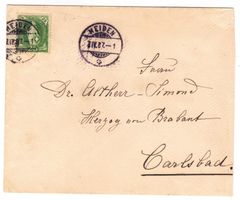 HEIDEN
HEIDEN
Frau
Dr. Altherr-Simond
Herzog von Brabant
Carlsbad.